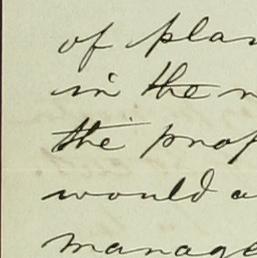 of plan
in the n
the prop
would a
manage